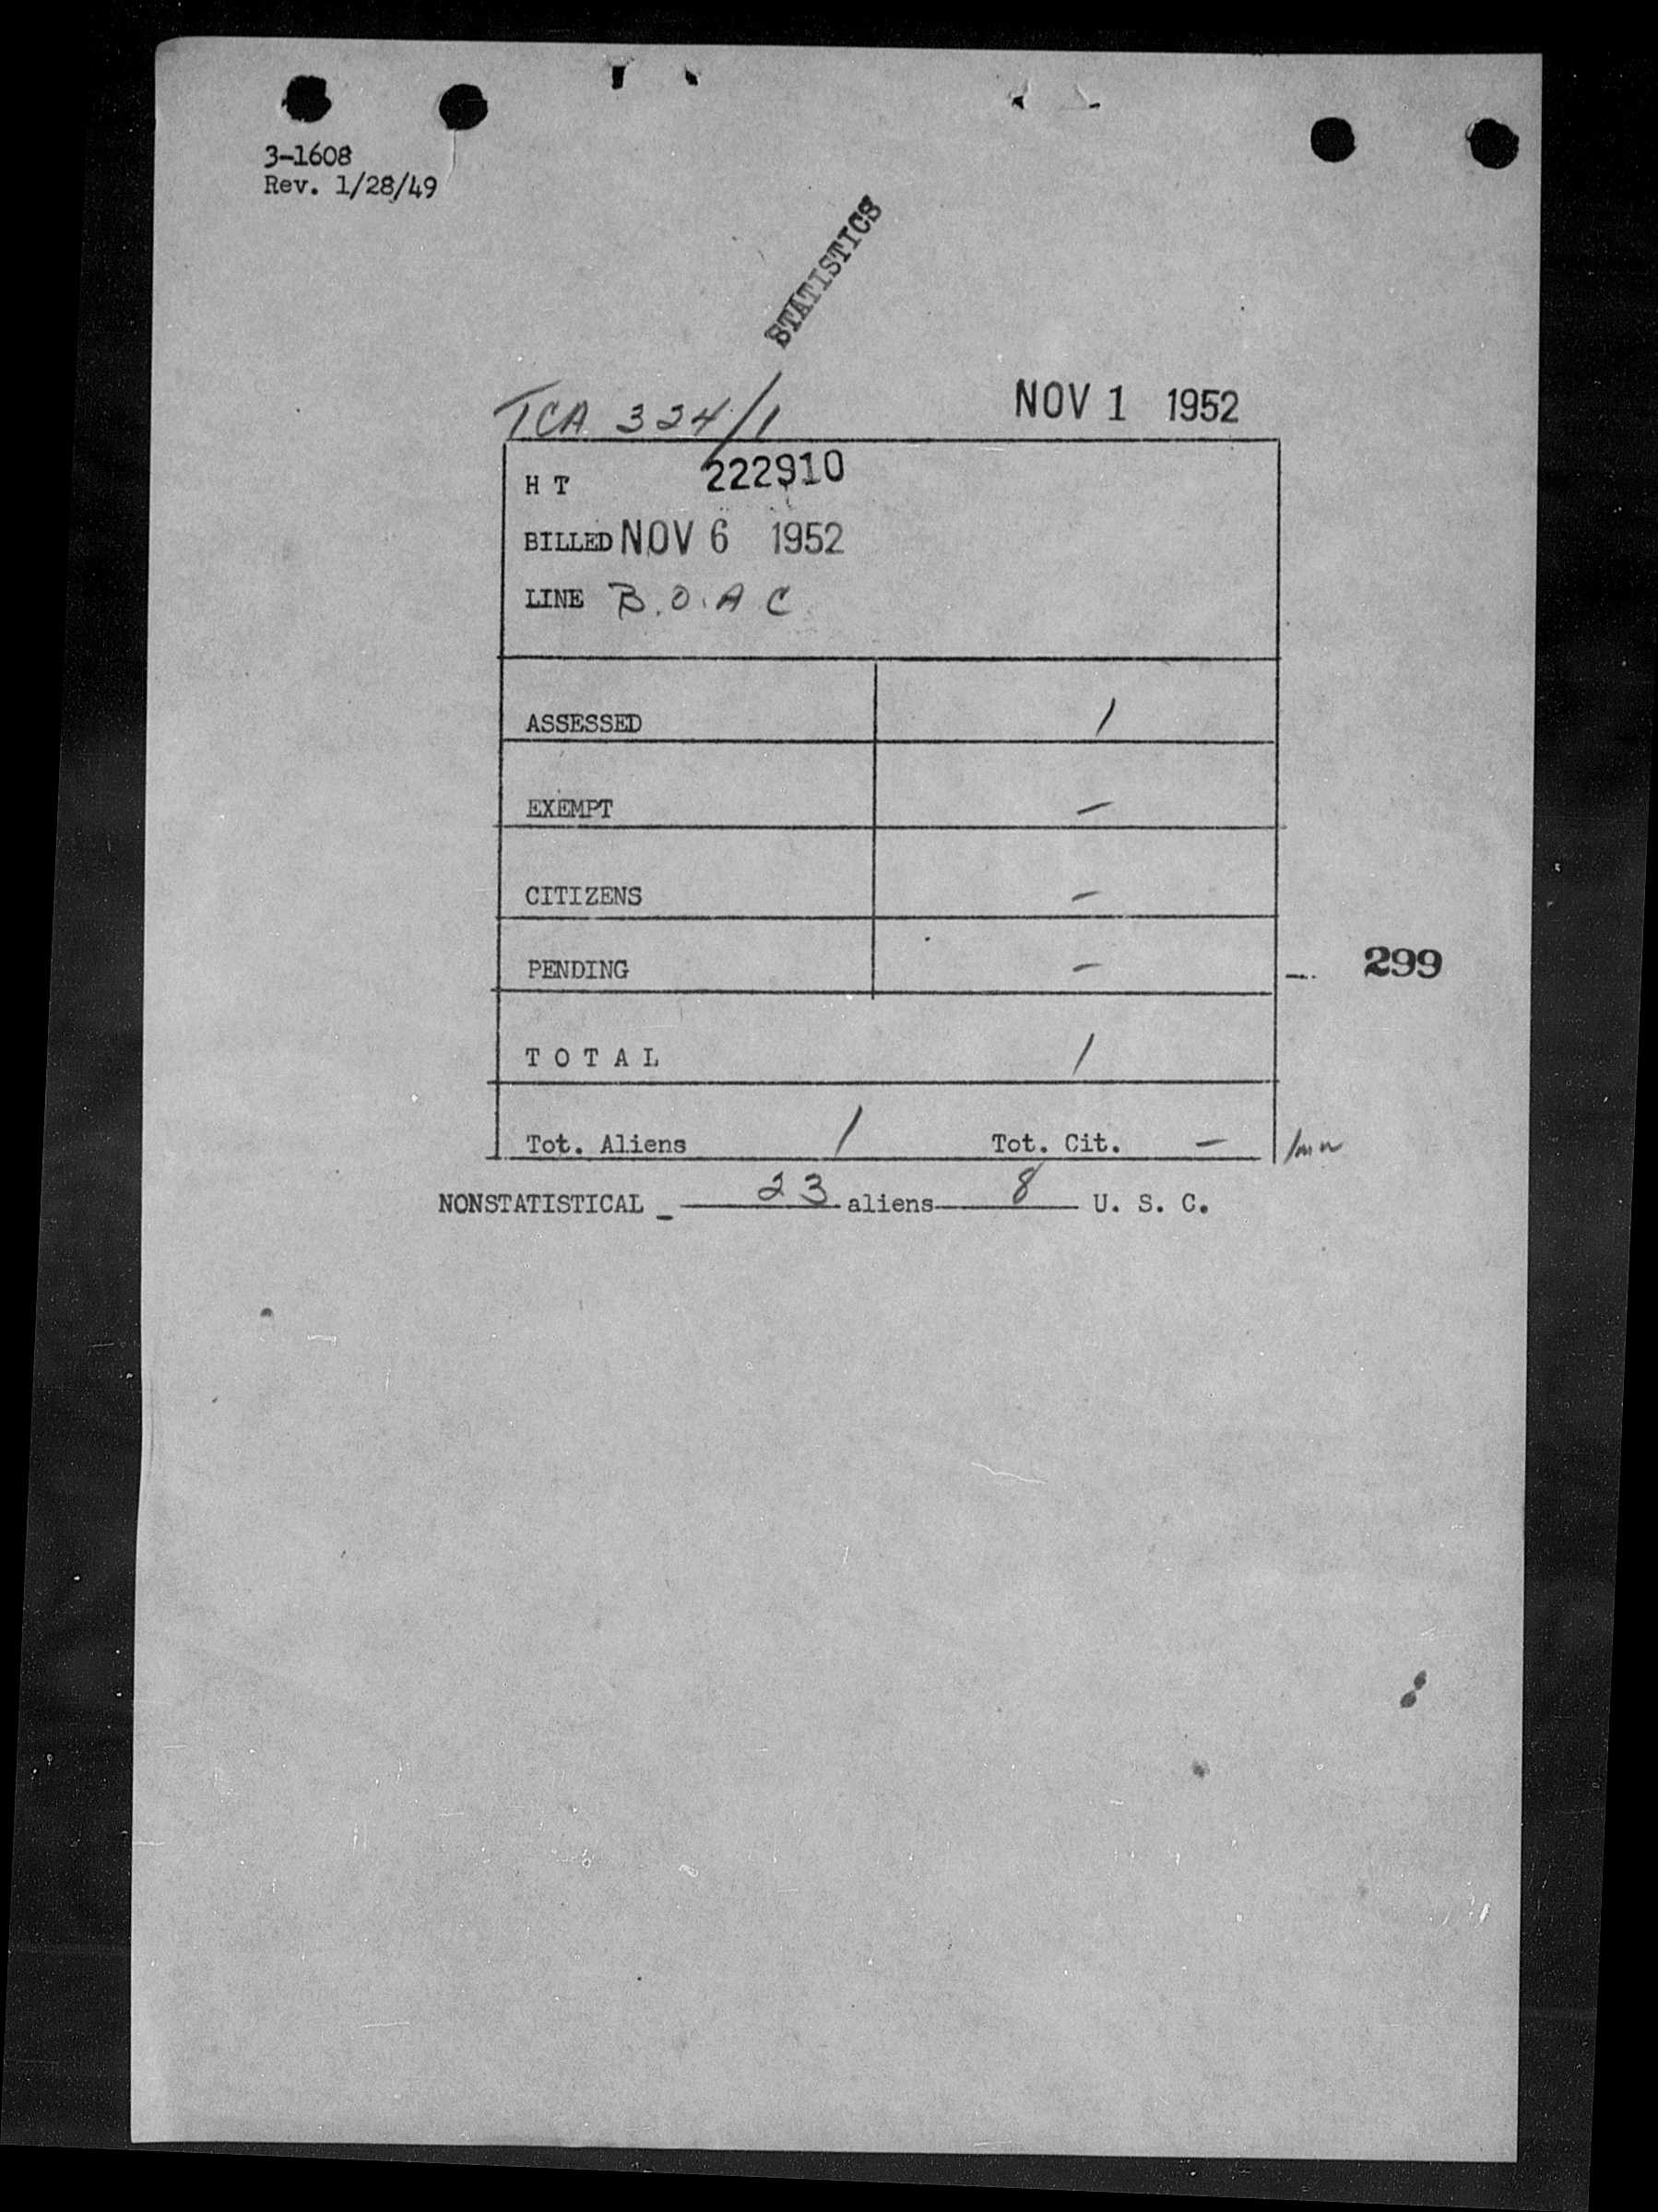 3-1608
Rev. 1/28/49
STATISTICS
TCA 334/1 NOV 1 1952
H T 222910
BILLED NOV 6 1952
LINE B.O.A C
ASSESSED 1
EXEMPT -
CITIZENS -
PENDING -
299
T O T A L 1
Tot. Aliens 1 Tot. Cit. -
NONSTATISTICAL - 23 aliens 8 U. S. C.